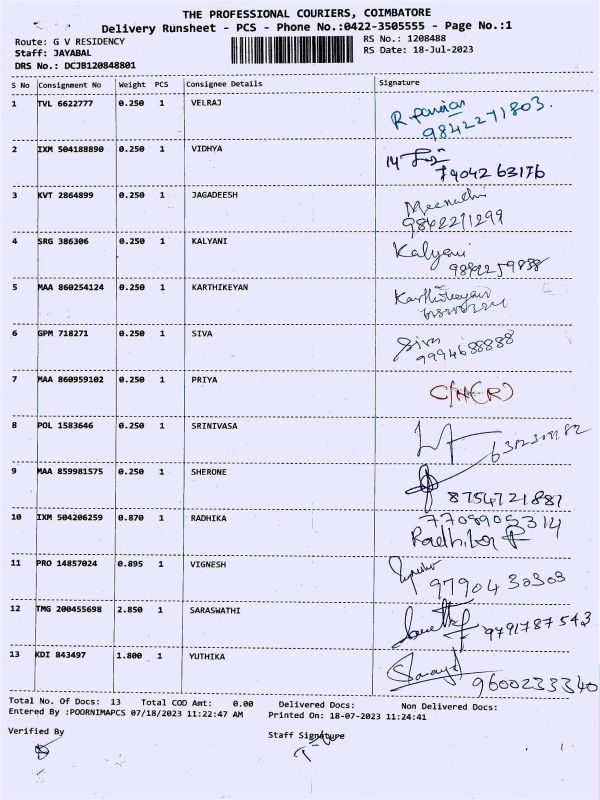 THE PROFESSIONAL COURIERS, COIMBATORE
Delivery Runsheet - PCS - Phone No.:0422-3505555 - Page No.:1
Route: G V RESIDENCY
RS No.: 1208488
Staff: JAYABAL
RS Date: 18-Jul-2023
DRS No.: DCJB120848801
S No Consignment No Weight PCS Consignee Details Signature
1 TVL 6622777 0.250 1 VELRAJ
9842271803.
2 IXM 504188890 0.250 1 VIDHYA
79042 63176
3 KVT 2864899 0.250 1 JAGADEESH Meenakshi
9842271299
4 SRG 386306 0.250 1 KALYANI Kalyani
5 MAA 860254124 0.250 1 KARTHIKEYAN Karthikeyan
6 GPM 718271 0.250 1 SIVA Siva
9994688888
7 MAA 860959102 0.250 1 PRIYA C/H(R)
8 POL 1583646 0.250 1 SRINIVASA
9 MAA 859981575 0.250 1 SHERONE
8754721887
10 IXM 504206259 0.870 1 RADHIKA 7708905314
Radhika R
11 PRO 14857024 0.895 1 VIGNESH
9790430303
12 TMG 200455698 2.850 1 SARASWATHI
9791787543
13 KDI 843497 1.800 1 YUTHIKA
9600233340
Total No. Of Docs: 13 Total COD Amt: 0.00 Delivered Docs: Non Delivered Docs:
Entered By :POORNIMAPCS 07/18/2023 11:22:47 AM Printed On: 18-07-2023 11:24:41
Verified By Staff Signature